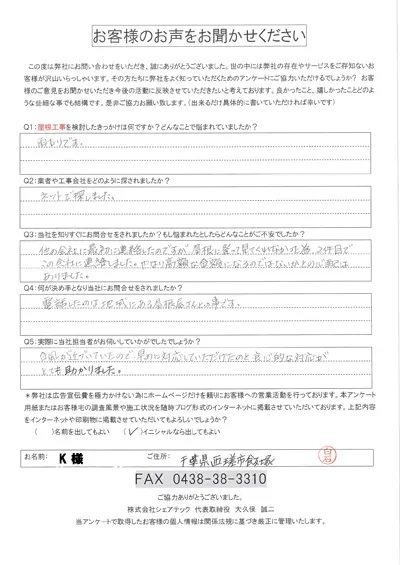 お客様のお声をお聞かせください
この度は弊社にお問い合わせをいただき、誠にありがとうございました。世の中には弊社の存在やサービスをご存知ないお
客様が沢山いらっしゃいます。その方たちに弊社をよく知っていただくためのアンケートにご協力いただけるでしょうか? お客
様のご意見をお聞かせいただき今後の活動に反映させていただきたいと考えております。良かったこと、嬉しかったことどのよ
うな些細な事でも結構です。是非ご協力お願い致します。(出来るだけ具体的に書いていただければ幸いです)
Q1:屋根工事を検討したきっかけは何ですか?どんなことで悩まれていましたか?
雨もりです。
Q2:業者や工事会社をどのように探されましたか?
ネットで探しました。
Q3:当社を知りすぐにお問合せをされましたか?もし悩まれたとしたらどんなことがご不安でしたか?
他の会社に最初に連絡したのですが、屋根に登って見てくれなかった為、2件目で
この会社に連絡しました。やはり高額な金額になるのではないかとの心配は
ありました。
Q4:何が決め手となり当社にお問合せをされましたか?
電話したのは地域にある屋根屋さんとの事です。
Q5:実際に当社担当者がお伺いしていかがでしたでしょうか?
台風が近づいていたので早めに対応していただけたのと良心的な対応が
とても助かりました。
*弊社は広告宣伝費を極力かけない為にホームページだけを頼りにお客様への営業活動を行っております。本アンケート
用紙またはお客様宅の調査風景や施工状況を随時ブログ形式のインターネットに掲載させていただいております。上記内容
をインターネットや印刷物に掲載させていただいてもよろしいでしょうか?
( )名前を出してもよい (✓)イニシャルなら出してもよい
お名前: K 様 ご住所: 千葉県西
FAX 0438-38-3310
ご協力ありがとうございました。
株式会社シェアテック 代表取締役 大久保 誠二
当アンケートで取得したお客様の個人情報は関係法規に基づき厳正に管理いたします。